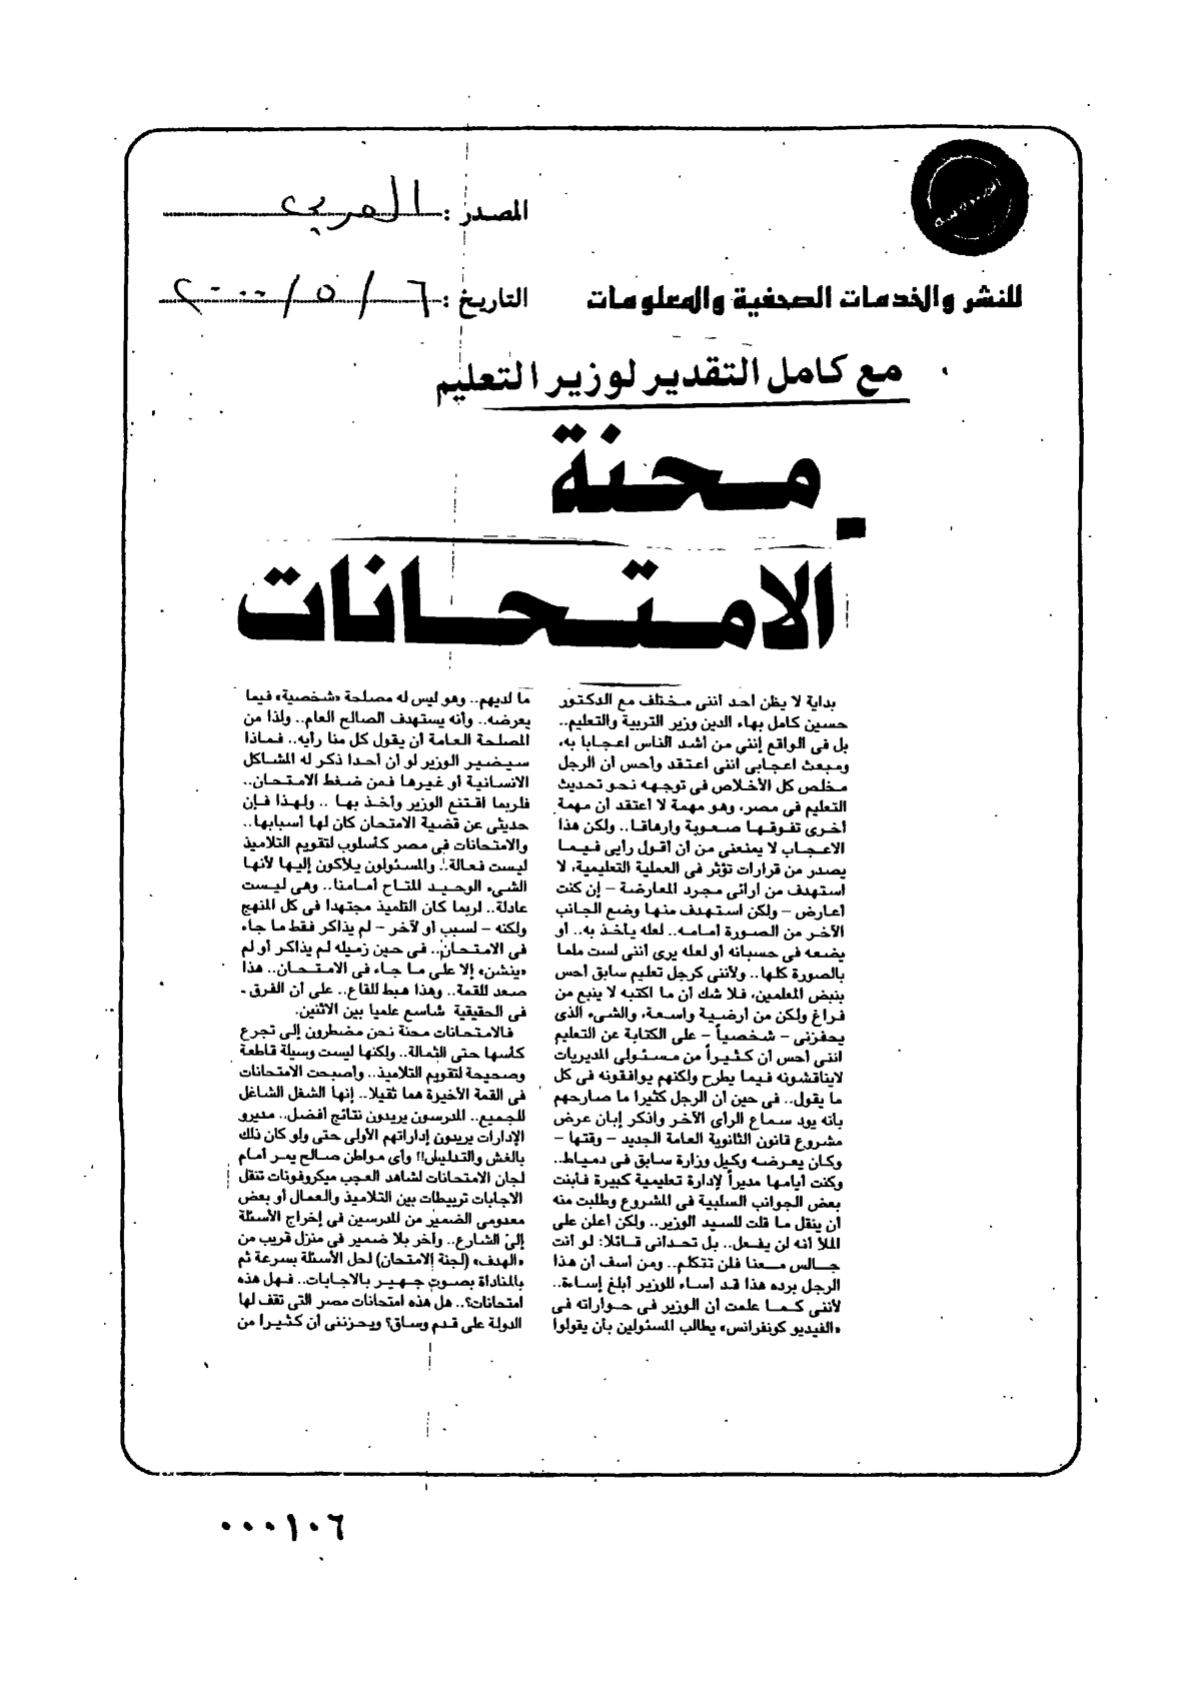 المصدر : العربي
للنشر والخدمات الصحفية والمعلومات
التاريخ : ٦ / ٥ / ٢٠٠٠
مع كامل التقدير لوزير التعليم
محنة
الامتحانات
بداية لا يظن أحد أننى مختلف مع الدكتور
حسين كامل بهاء الدين وزير التربية والتعليم..
بل فى الواقع إننى من أشد الناس اعجابا به،
ومبعث اعجابى أننى أعتقد وأحس أن الرجل
مخلص كل الأخلاص فى توجهه نحو تحديث
التعليم فى مصر، وهو مهمة لا أعتقد أن مهمة
أخرى تفوقها صعوبة وارهاقا.. ولكن هذا
الاعجاب لا يمنعنى من أن أقول رأيى فيما
يصدر من قرارات تؤثر فى العملية التعليمية، لا
استهدف من أرائى مجرد المعارضة – إن كنت
أعارض – ولكن استهدف منها وضع الجانب
الآخر من الصورة أمامه.. لعله يأخذ به.. أو
يضعه فى حسبانه أو لعله يرى أننى لست ملما
بالصورة كلها.. ولأننى كرجل تعليم سابق أحس
بنبض المعلمين، فلا شك أن ما اكتبه لا ينبع من
فراغ ولكن من أرضية واسعة، والشىء الذى
يحفزنى – شخصياً – على الكتابة عن التعليم
اننى أحس أن كثيراً من مسئولى المديريات
لايناقشونه فيما يطرح ولكنهم يوافقونه فى كل
ما يقول.. فى حين أن الرجل كثيرا ما صارحهم
بأنه يود سماع الرأى الآخر وأذكر إبان عرض
مشروع قانون الثانوية العامة الجديد – وقتها –
وكان يعرضه وكيل وزارة سابق فى دمياط..
وكنت أيامها مديراً لإدارة تعليمية كبيرة فأبنت
بعض الجوانب السلبية فى المشروع وطلبت منه
أن ينقل ما قلت للسيد الوزير.. ولكن أعلن على
الملأ أنه لن يفعل.. بل تحدانى قائلا: لو أنت
جالس معنا فلن تتكلم.. ومن أسف أن هذا
الرجل برده هذا قد أساء للوزير أبلغ إساءة..
لأننى كما علمت أن الوزير فى حواراته فى
«الفيديو كونفرانس» يطالب المسئولين بأن يقولوا
ما لديهم.. وهو ليس له مصلحة «شخصية» فيما
يعرضه.. وأنه يستهدف الصالح العام.. ولذا من
المصلحة العامة أن يقول كل منا رأيه.. فماذا
سيضير الوزير لو أن أحدا ذكر له المشاكل
الانسانية أو غيرها فمن ضغط الامتحان..
فلربما اقتنع الوزير وأخذ بها .. ولهذا فإن
حديثى عن قضية الامتحان كان لها أسبابها..
والامتحانات فى مصر كأسلوب لتقويم التلاميذ
ليست فعالة.. والمسئولون يلاكون إليها لأنها
الشىء الوحيد المتاح أمامنا.. وهى ليست
عادلة.. لربما كان التلميذ مجتهدا فى كل المنهج
ولكنه – لسبب أو لآخر – لم يذاكر فقط ما جاء
فى الامتحان.. فى حين زميله لم يذاكر أو لم
«ينشن» إلا على ما جاء فى الامتحان.. هذا
صعد للقمة.. وهذا هبط للقاع.. على أن الفرق
فى الحقيقية شاسع علميا بين الاثنين.
فالامتحانات محنة نحن مضطرون إلى تجرع
كأسها حتى الثمالة.. ولكنها ليست وسيلة قاطعة
وصحيحة لتقويم التلاميذ.. وأصبحت الامتحانات
فى القمة الأخيرة هما ثقيلا.. إنها الشغل الشاغل
للجميع.. المدرسون يريدون نتائج أفضل.. مديرو
الإدارات يريدون إداراتهم الأولى حتى ولو كان ذلك
بالغش والتدليس!! وأى مواطن صالح يمر أمام
لجان الامتحانات لشاهد العجب ميكروفونات تنقل
الاجابات تربيطات بين التلاميذ والعمال أو بعض
معدومى الضمير من المدرسين فى إخراج الأسئلة
إلى الشارع.. وآخر بلا ضمير فى منزل قريب من
«الهدف» (لجنة الامتحان) لحل الأسئلة بسرعة ثم
بالمناداة بصوت جهير بالاجابات.. فهل هذه
امتحانات؟.. هل هذه امتحانات مصر التى تقف لها
الدولة على قدم وساق؟ ويحزننى أن كثيرا من
٠٠٠١٠٦